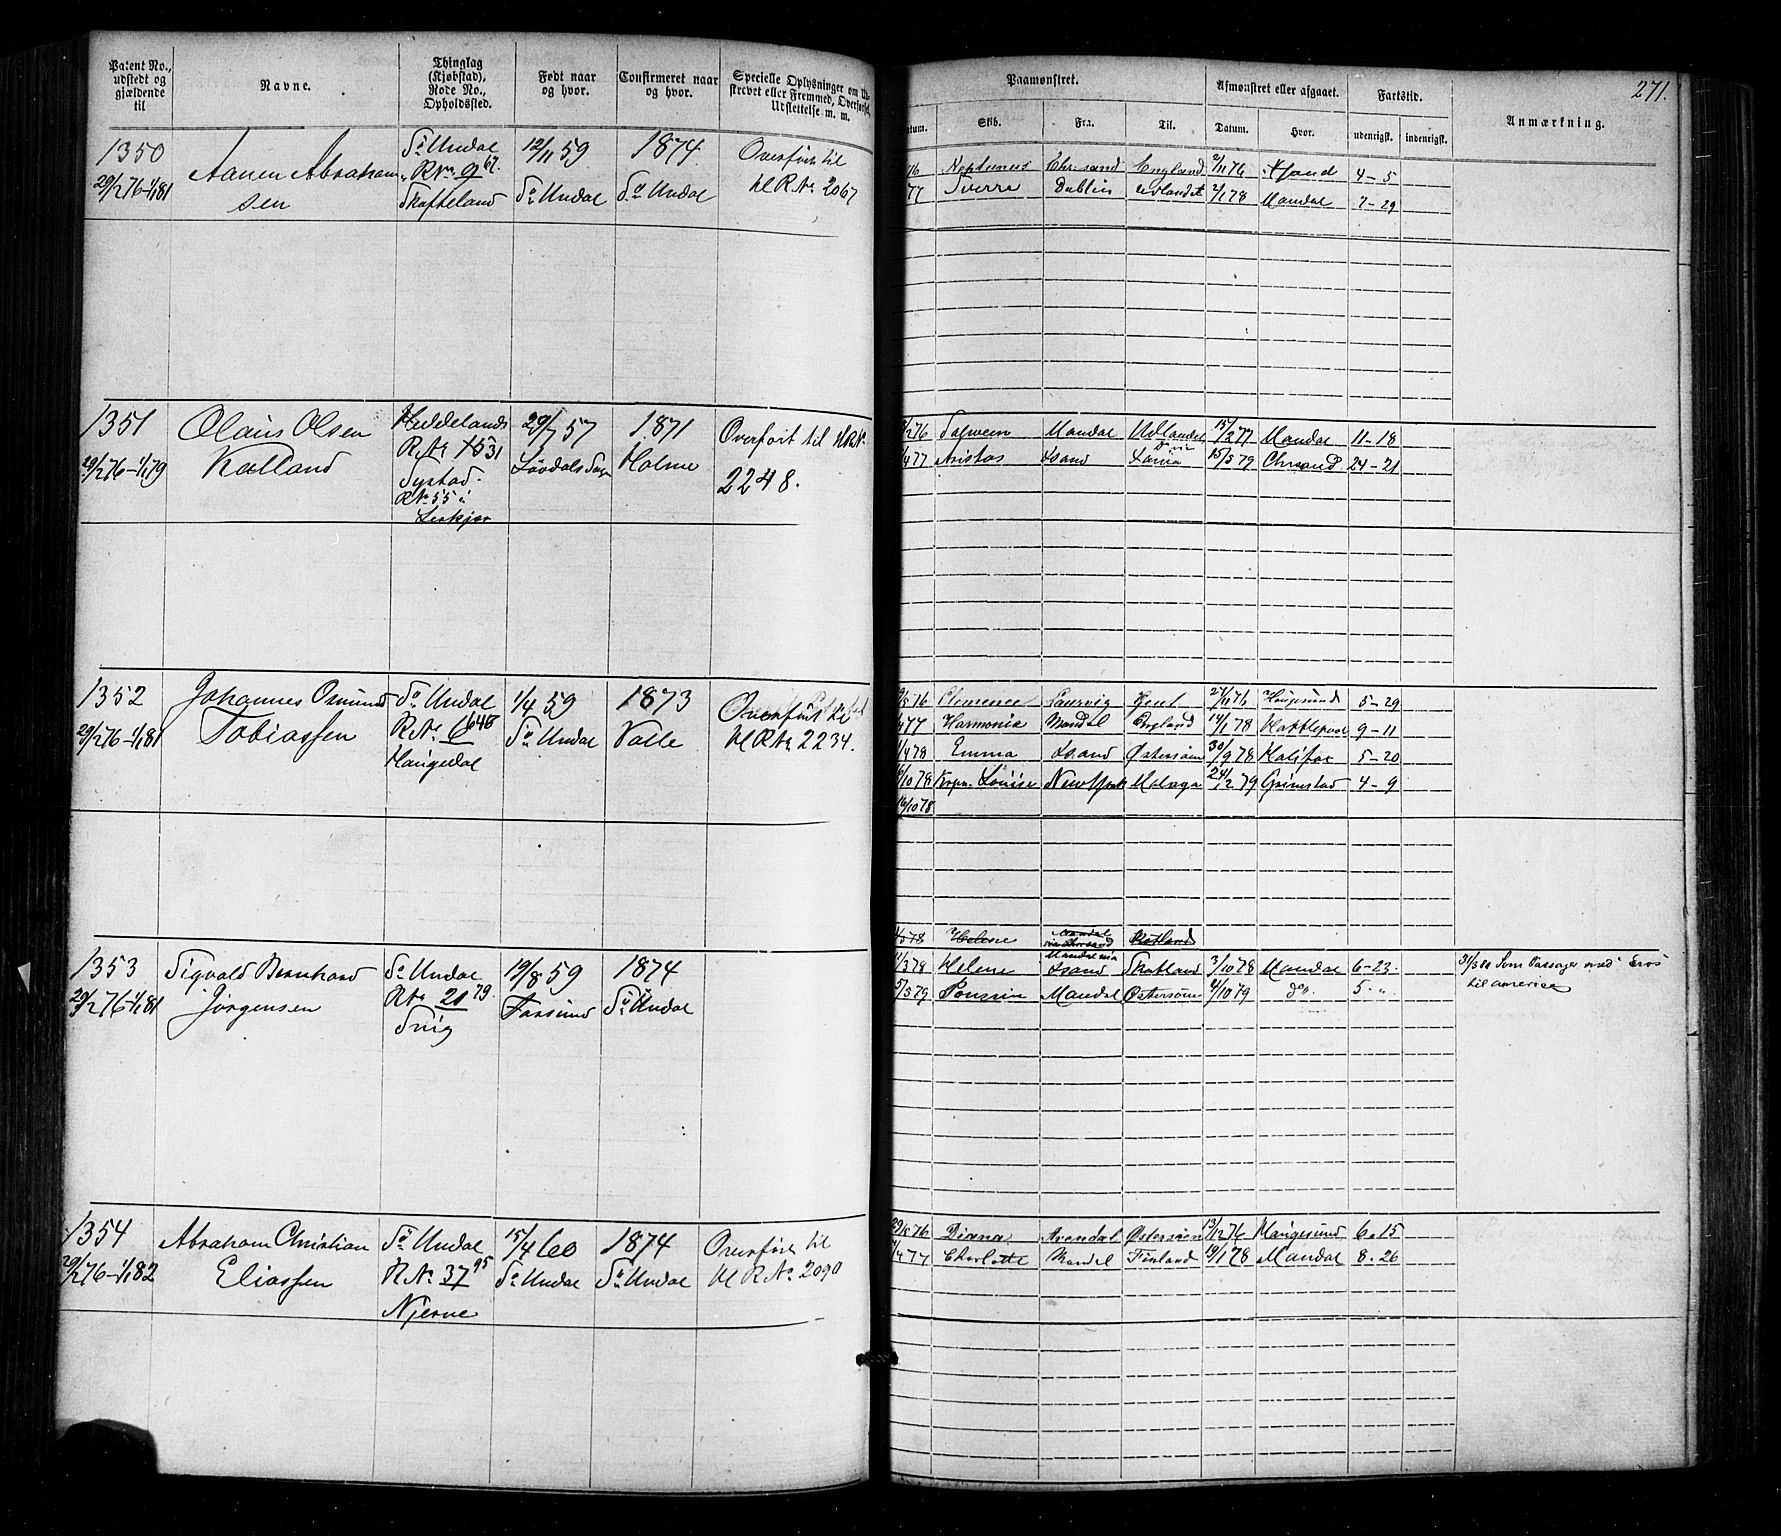 Patent No., udstedt og gjældende til
Navne.
Thinglag (Kjøbstad), Rode No., Opholdssted.
Født naar og hvor.
Confirmeret naar og hvor.
Specielle Oplysninger om Udskrevet eller Fremmed, Overførsel, Udslettelse m. m.
Paamønstret.
Skib.
Fra.
Til.
Afmønstret eller afgaaet.
Datum.
Hvor.
Fartstid.
udenrigsk.
indenrigsk.
Anmærkning.
271.
1350
29/2 76-1/1 81
Aanen Abraham
sen
So Undal
R No 9 67.
Skofteland
12/11 59
So Undal
1874
So Undal
Overført til
H R No 2067
76 Neptunus Chr.sand England 2/11 76 Xsand 4-5
77 Sverre Dublin Udlandet 2/1 78 Mandal 7-29
1351
29/2 76-1/1 79
Olaus Olsen
Kalland
Heddelands
R No 531
R No 55 i
29/7 57
Løvdals Sogn
1871
Holme
Overført til H R No
2248.
76 Mandal Udlandet 15/2 77 Mandal 11-18
77 Aristos Xsand 15/5 79 Chrsand 24-21
1352
29/2 76-1/1 81
Johannes Osmund
Tobiassen
So Undal
R No 6 640
Haugedal
1/4 59
So Undal
1873
Valle
Overført til
H R No 2234.
5 76 Clemence Laurvig Gent 27/11 76 Haugesund 5-29
4 77 Harmonia Mandal England 14/1 78 9-11
4 78 Emma Xsand Østersøen 30/9 78 Halifax 5-20
10 78 Louise New York Malaga 24/2 79 Grimstad 4-9
16/10 78
78 Helene Mandal via Chrsand Skotland
1353
29/2 76-1/1 81
Sigvald Bernhard
Jørgensen
So Undal
R No 21 79
Snig
19/8 59
Farsund
1874
So Undal
3 78 Helene Mandal via Xsand Skotland 3/10 78 Mandal 6-23.
5 79 Poussin Mandal Østersøen 4/10 79 do. 5-"
31/3 80 Som Passager med "Eros"
til america
1354
29/2 76-1/1 82
Abraham Christian
Eliassen
So Undal
R No 37 95
Njerve
15/4 60
So Undal
1874
So Undal
Overført til
H R No 2090
76 Diana Arendal Østersøen 13/12 76 Haugesund 6-15
4 77 Charlotte Mandal Finland 19/1 78 Mandal 8-26